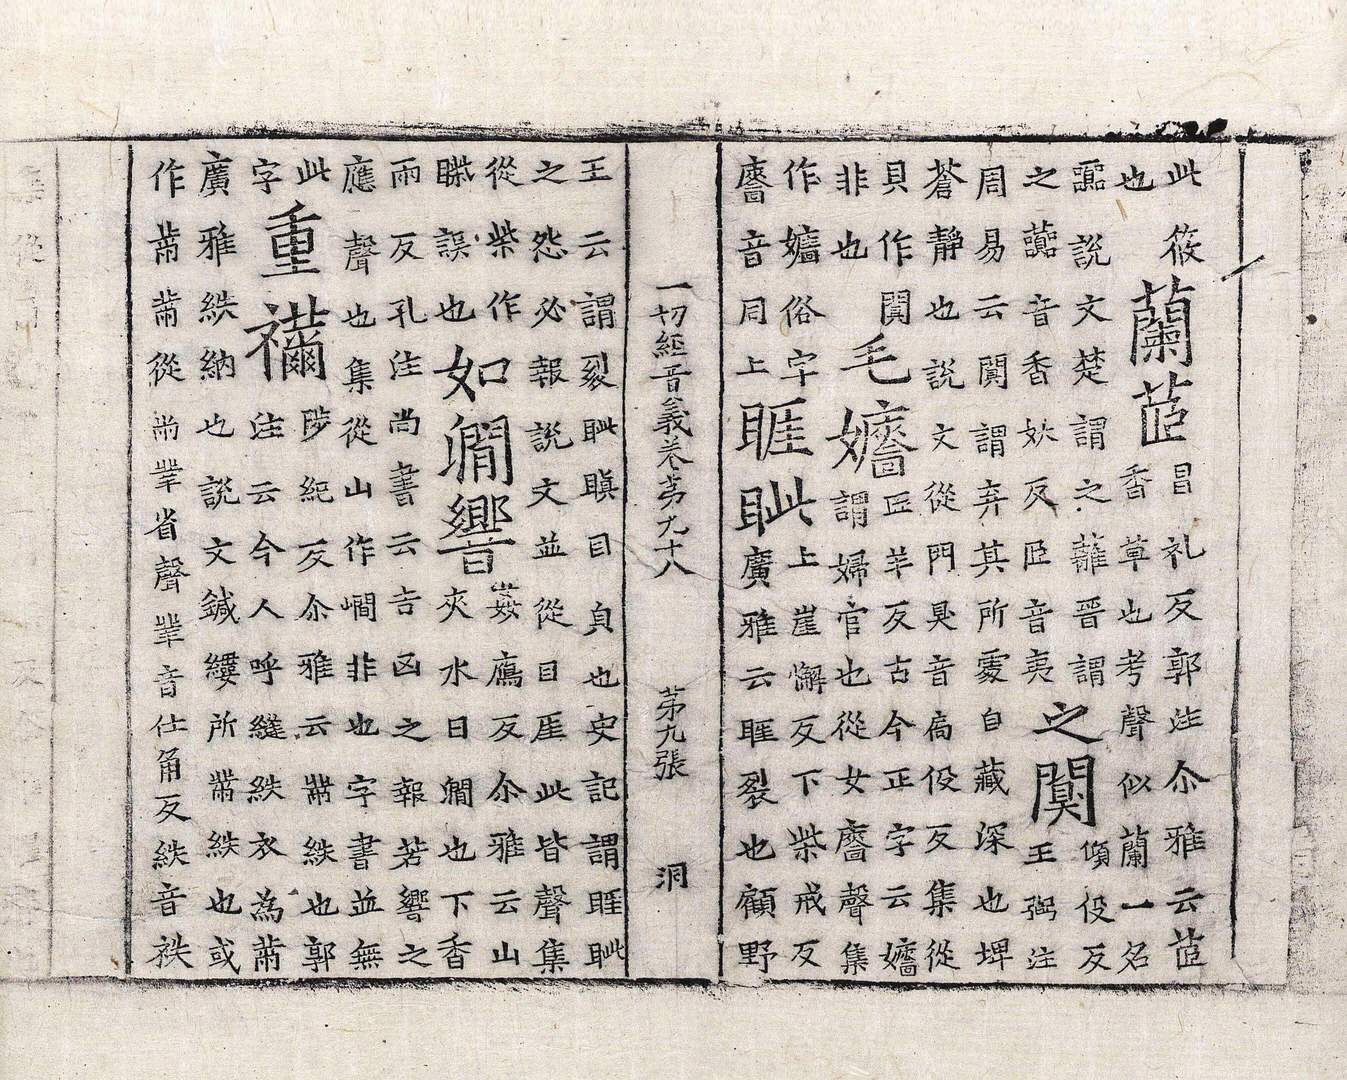 此筱
也
蘭茞
昌礼反郭注尒雅云茞
香草也考聲似蘭一名
虈說文楚謂之蘺晉謂
之虈音香妖反𦣞音夷
之闃
傾役反
王弼注
周易云闃謂弃其所處自藏深也埤
蒼靜也說文從門狊音高役反集從
貝作闃
非也
毛嬙
匠羊反古今正字云嬙
謂婦官也從女廧聲集
作嬙俗字
廧音同上
睚眦
上崖懈反下柴戒反
廣雅云睚裂也顧野
一切經音義卷苐九十八 苐九張 洞
王云謂裂眦瞋目皃也史記謂睚眦
之怨必報說文並從目厓此皆聲集
從柴作
誤也
如㵎響
姦鴈反尒雅云山
夾水曰㵎也下香
兩反孔注尚書云吉凶之報若響之
應聲也集從山作嶰非也字書並無
此
字
重襧
陟紀反尒雅云黹紩也郭
注云今人呼縫紩衣為黹
廣雅紩納也說文鍼縷所黹紩也或
作黹黹從㡀丵省聲丵音仕角反紩音袟